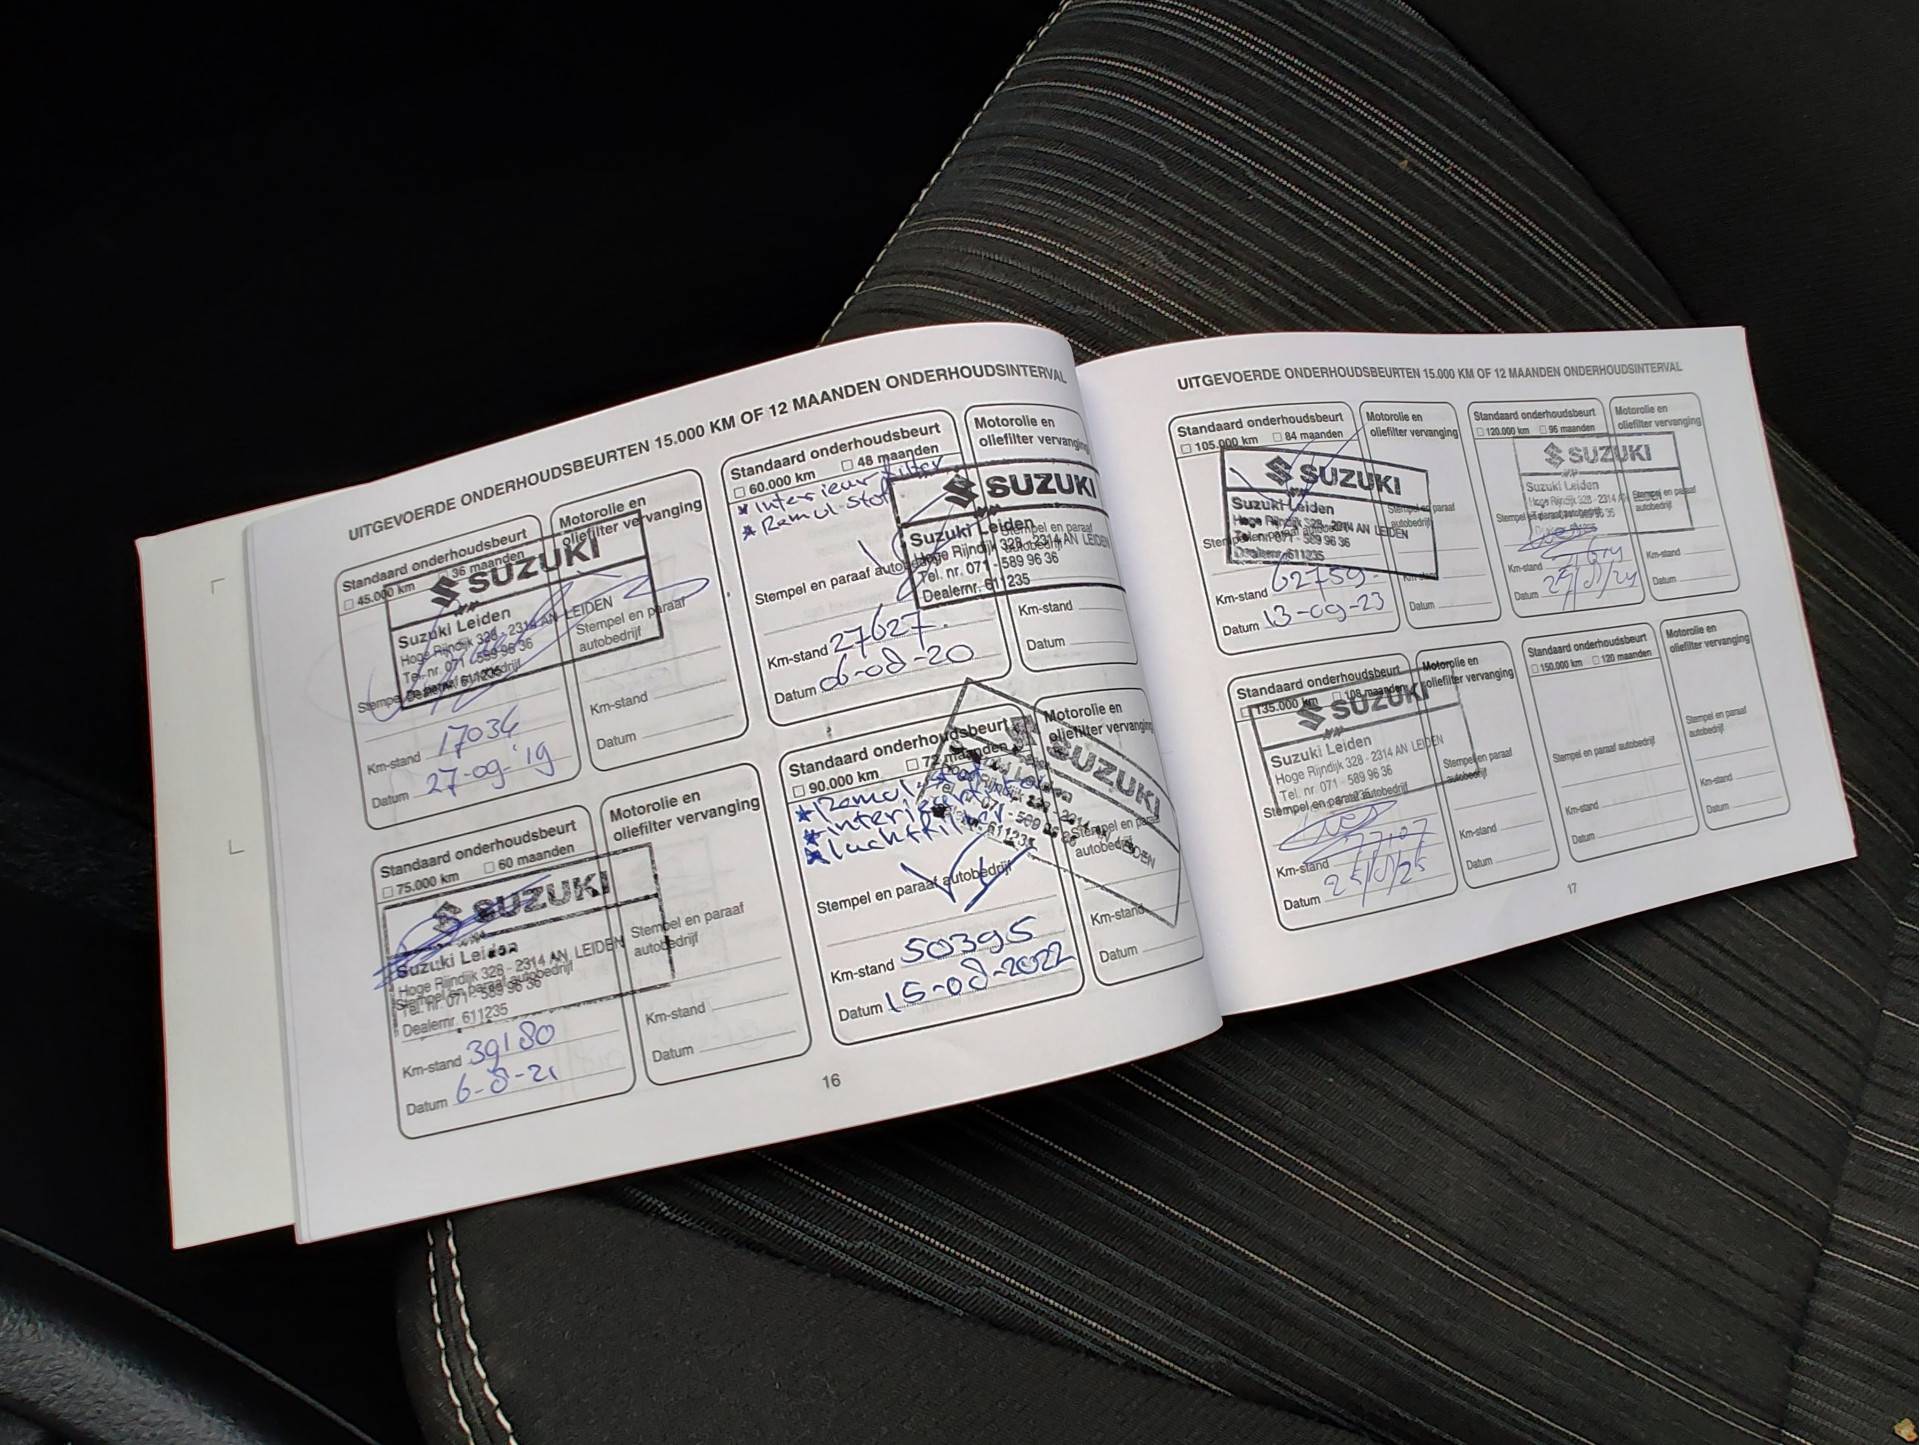 UITGEVOERDE ONDERHOUDSBEURTEN 15.000 KM OF 12 MAANDEN ONDERHOUDSINTERVAL
Standaard onderhoudsbeurt
45.000 km 36 maanden
SUZUKI
Suzuki Leiden
Hoge Rijndijk 328 - 2314 AN LEIDEN
Tel. nr. 071 - 589 96 36
Dealernr. 611235
Km-stand 17034
Datum 27-09-'19
Motorolie en
oliefilter vervanging
Stempel en paraaf
autobedrijf
Km-stand
Datum
Standaard onderhoudsbeurt
60.000 km 48 maanden
* Interieurfilter
* Remvl. stof
SUZUKI
Suzuki Leiden
Hoge Rijndijk 328 - 2314 AN LEIDEN
Tel. nr. 071 - 589 96 36
Dealernr. 611235
Stempel en paraaf autobedrijf
Km-stand 27627
Datum 06-08-20
Motorolie en
oliefilter vervanging
Stempel en paraaf
autobedrijf
Km-stand
Datum
Standaard onderhoudsbeurt
75.000 km 60 maanden
SUZUKI
Suzuki Leiden
Hoge Rijndijk 328 - 2314 AN LEIDEN
Tel. nr. 071 - 589 96 36
Dealernr. 611235
Stempel en paraaf autobedrijf
Km-stand 39180
Datum 6-8-21
Motorolie en
oliefilter vervanging
Stempel en paraaf
autobedrijf
Km-stand
Datum
Standaard onderhoudsbeurt
90.000 km 72 maanden
* luchtfilter
SUZUKI
Stempel en paraaf autobedrijf
Km-stand 50395
Datum 15-08-2022
Motorolie en
oliefilter vervanging
Stempel en paraaf
autobedrijf
Km-stand
Datum
16
UITGEVOERDE ONDERHOUDSBEURTEN 15.000 KM OF 12 MAANDEN ONDERHOUDSINTERVAL
Standaard onderhoudsbeurt
105.000 km 84 maanden
SUZUKI
Suzuki Leiden
Hoge Rijndijk 328 - 2314 AN LEIDEN
Tel. nr. 071 - 589 96 36
Dealernr. 611235
Km-stand 62759
Datum 13-09-23
Motorolie en
oliefilter vervanging
Stempel en paraaf
autobedrijf
Km-stand
Datum
Standaard onderhoudsbeurt
120.000 km 96 maanden
SUZUKI
Suzuki Leiden
Hoge Rijndijk 328 - 2314 AN LEIDEN
Km-stand
Datum
Motorolie en
oliefilter vervanging
Stempel en paraaf
autobedrijf
Km-stand
Datum
Standaard onderhoudsbeurt
135.000 km 108 maanden
SUZUKI
Suzuki Leiden
Hoge Rijndijk 328 - 2314 AN LEIDEN
Tel. nr. 071 - 589 96 36
Stempel en paraaf autobedrijf
Km-stand 77107
Datum
Motorolie en
oliefilter vervanging
Stempel en paraaf
autobedrijf
Km-stand
Datum
Standaard onderhoudsbeurt
150.000 km 120 maanden
Stempel en paraaf autobedrijf
Km-stand
Datum
Motorolie en
oliefilter vervanging
Stempel en paraaf
autobedrijf
Km-stand
Datum
17